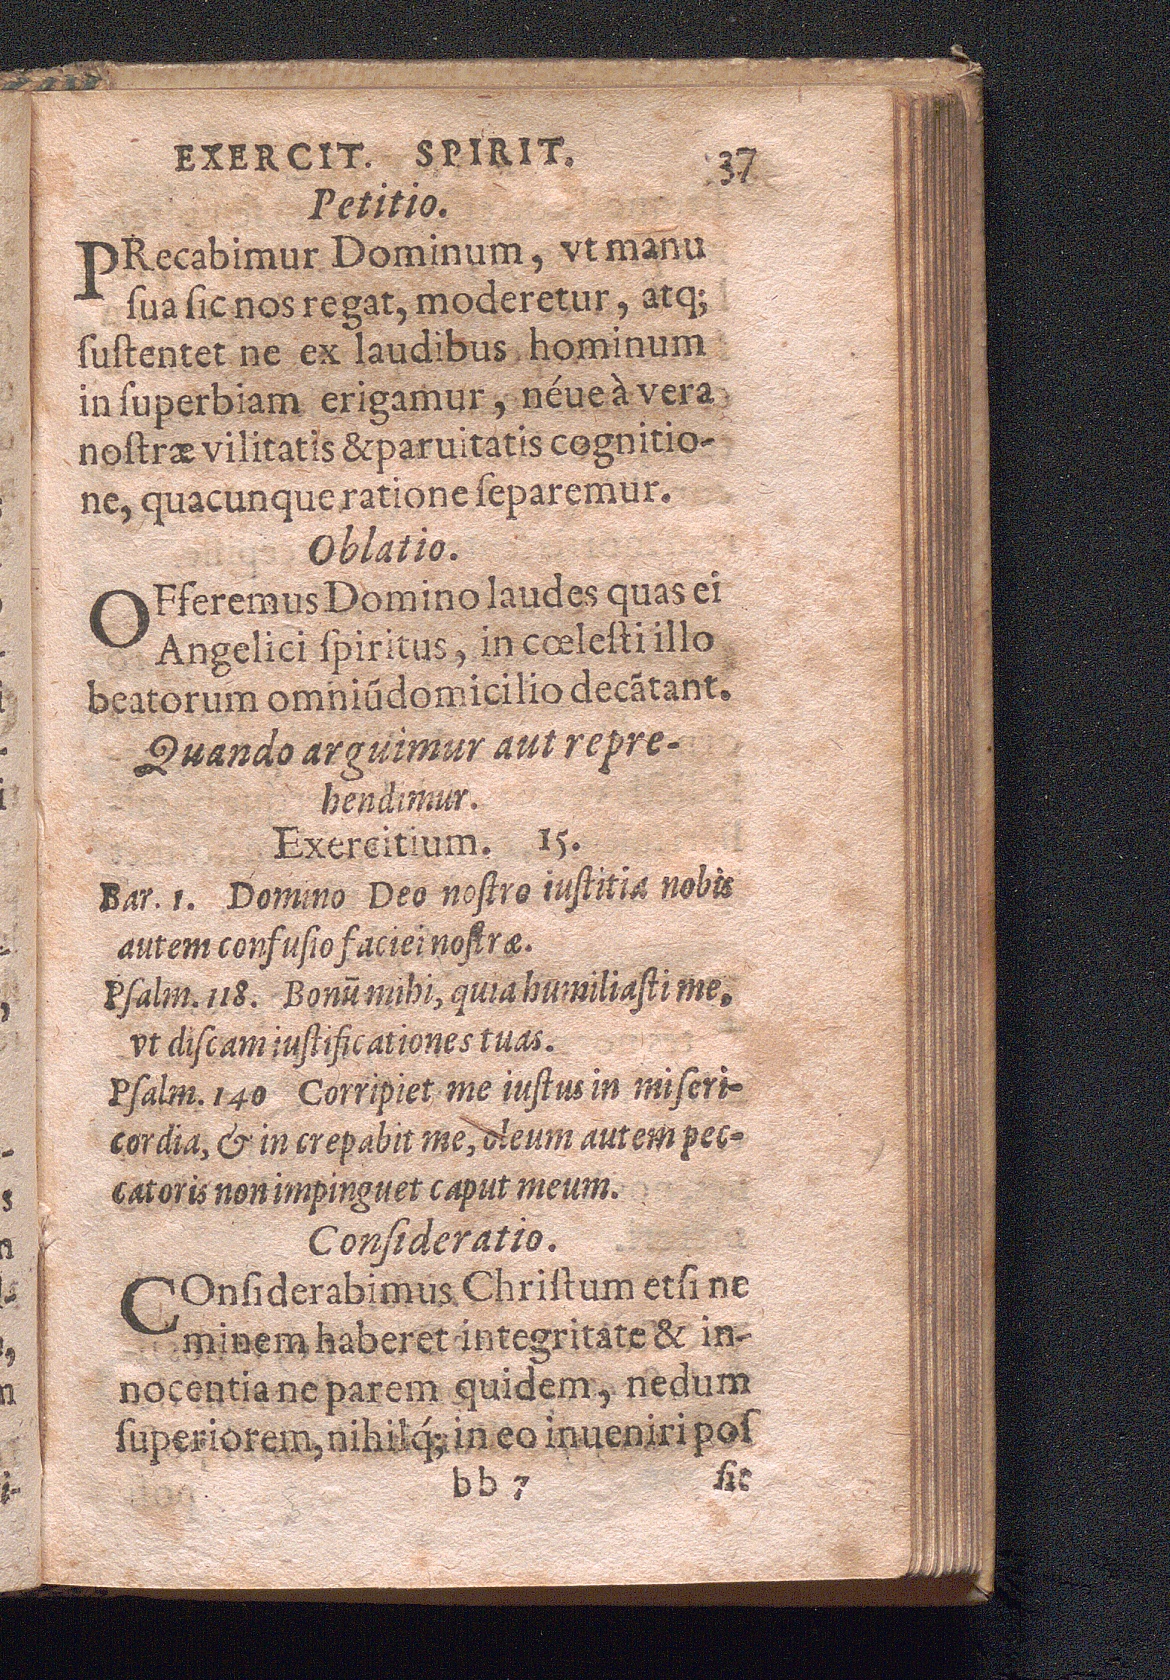 EXERCIT. SPIRIT. 37
Petitio.
PRecabimur Dominum, vt manu
ſua ſic nos regat, moderetur, atq;
ſuſtentet ne ex laudibus hominum
in ſuperbiam erigamur, néue à vera
noſtræ vilitatis & paruitatis cognitio-
ne, quacunque ratione ſeparemur.
Oblatio.
OFferemus Domino laudes quas ei
Angelici ſpiritus, in cœleſti illo
beatorum omniū domicilio decātant.
Quando arguimur aut repre-
hendimur.
Exercitium. 15.
Bar. 1. Domino Deo noſtro iuſtitia nobis
autem confuſio faciei noſtræ.
Pſalm. 118. Bonū mihi, quia humiliaſti me,
vt diſcam iuſtificationes tuas.
Pſalm. 140 Corripiet me iuſtus in miſeri-
cordia, & increpabit me, oleum autem pec-
catoris non impinguet caput meum.
Conſideratio.
COnſiderabimus Chriſtum etſi ne
minem haberet integritate & in-
nocentia ne parem quidem, nedum
ſuperiorem, nihilq́; in eo inueniri poſ
bb 7 ſit